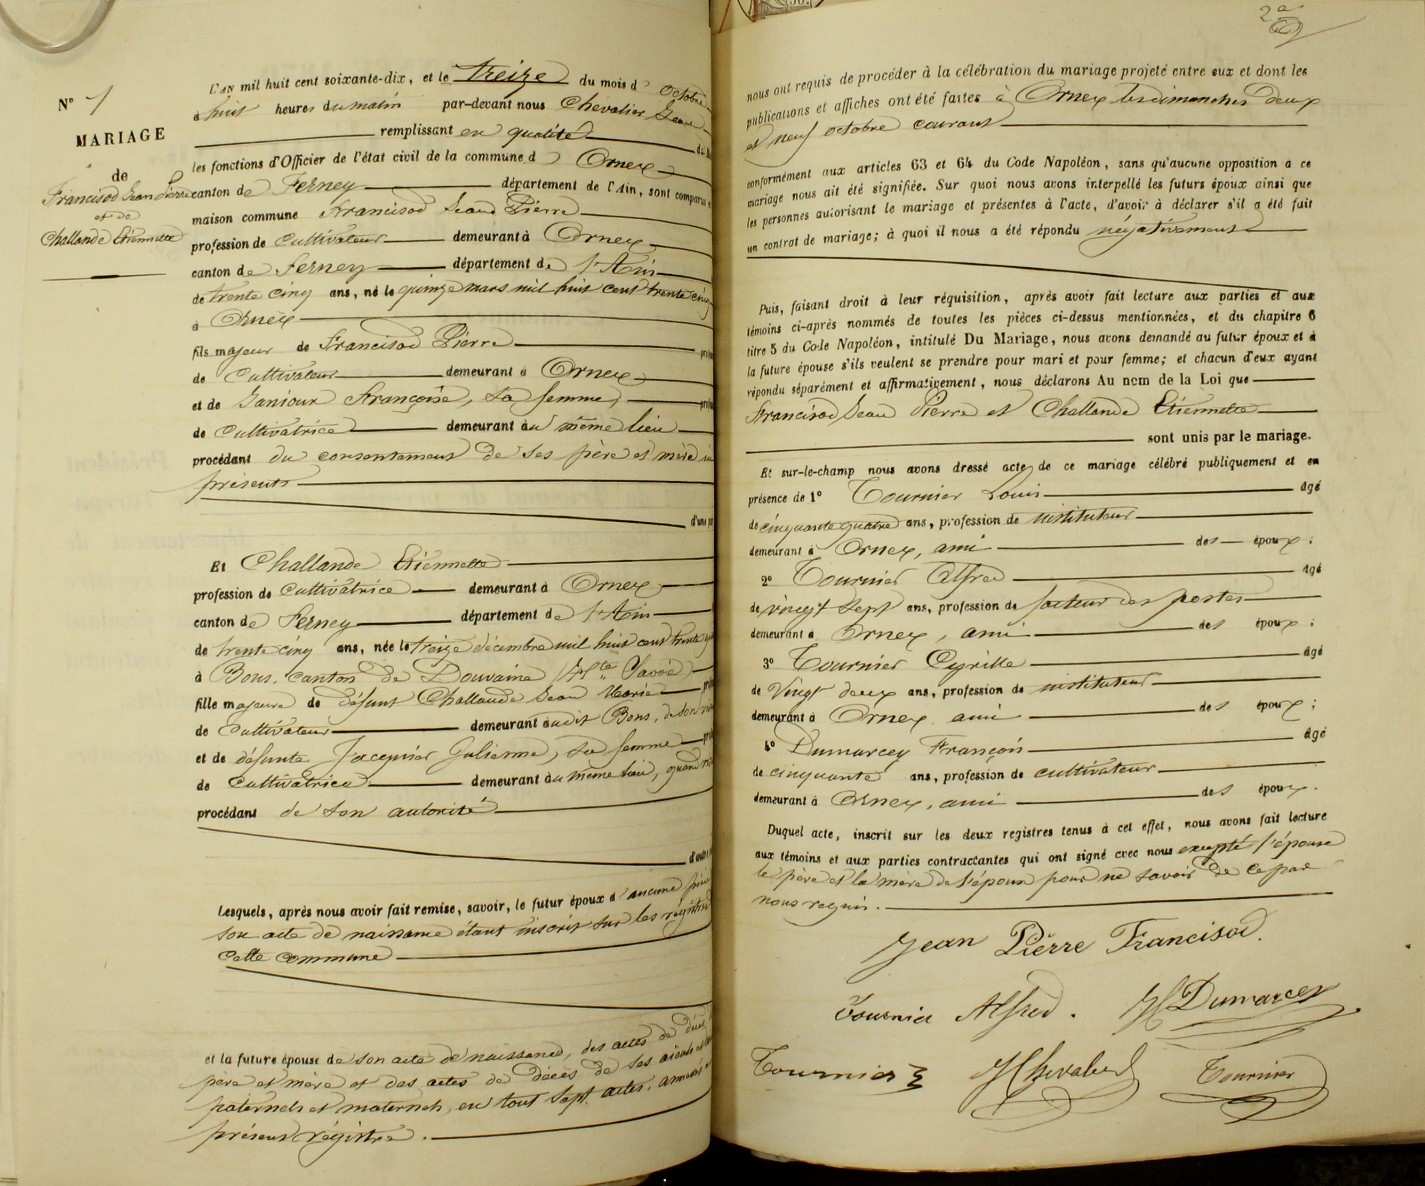 N° 1
MARIAGE
de
Francisod Jean Pierre
et de
Challande Etiennette
L'AN mil huit cent soixante-dix, et le treize du mois d'Octobre
à huit heures du matin par-devant nous Chevalier Jean
remplissant en qualité
les fonctions d'Officier de l'état civil de la commune d Ornex
canton de Ferney département de l'Ain, sont comparus
maison commune Francisod Jean Pierre
profession de Cultivateur demeurant à Ornex
canton de Ferney département de l'Ain
de trente cinq ans, né le quinze mars mil huit cent trente cinq
à Ornex
fils majeur de Francisod Pierre
de Cultivateur demeurant à Ornex
et de Janioux Françoise, sa femme,
de Cultivatrice demeurant au même lieu
procédant du consentement de ses père et mère
présents
d'une
Et Challande Etiennette
profession de Cultivatrice demeurant à Ornex
canton de Ferney département de l'Ain
de trente cinq ans, née le treize décembre mil huit cent trente
à Bons, Canton de Douvaine (Hte Savoie)
fille majeure de défunt Challande Jean Marie
de Cultivateur demeurant audit Bons, de son
et de défunte Jacquier Julienne, sa femme
de Cultivatrice demeurant au même lieu, quand
procédant de son autorité
d'autre
Lesquels, après nous avoir fait remise, savoir, le futur époux d'aucune pièce
son acte de naissance étant inscrit sur les régistres
cette commune
et la future épouse de son acte de naissance, des actes de décès
père et mère et des actes de décès de ses aïeuls
paternels et maternels, en tout sept actes, annexés
présent régistre.
2
nous ont requis de procéder à la célébration du mariage projeté entre eux et dont les
publications et affiches ont été faites à Ornex les dimanches deux
et neuf octobre courant
conformément aux articles 63 et 64 du Code Napoléon, sans qu'aucune opposition à ce
mariage nous ait été signifiée. Sur quoi nous avons interpellé les futurs époux ainsi que
les personnes autorisant le mariage et présentes à l'acte, d'avoir à déclarer s'il a été fait
un contrat de mariage; à quoi il nous a été répondu négativement
Puis, faisant droit à leur réquisition, après avoir fait lecture aux parties et aux
témoins ci-après nommés de toutes les pièces ci-dessus mentionnées, et du chapitre 6
titre 5 du Code Napoléon, intitulé Du Mariage, nous avons demandé au futur époux et à
la future épouse s'ils veulent se prendre pour mari et pour femme; et chacun d'eux ayant
répondu séparément et affirmativement, nous déclarons Au nom de la Loi que
Francisod Jean Pierre et Challande Etiennette
sont unis par le mariage.
Et sur-le-champ nous avons dressé acte de ce mariage célébré publiquement et en
présence de 1° Tournier Louis âgé
de cinquante quatre ans, profession de instituteur
demeurant à Ornex, ami des époux;
2° Tournier Alfred âgé
de vingt sept ans, profession de facteur des postes
demeurant à Ornex, ami des époux;
3° Tournier Cyrille âgé
de Vingt deux ans, profession de instituteur
demeurant à Ornex, ami des époux;
4° Dumarcey François âgé
de cinquante ans, profession de cultivateur
demeurant à Ornex, ami des époux.
Duquel acte, inscrit sur les deux registres tenus à cet effet, nous avons fait lecture
aux témoins et aux parties contractantes qui ont signé avec nous excepté l'épouse
le père et la mère de l'époux pour ne savoir de ce par
nous requis.
Jean Pierre Francisod.
Tournier Alfred. Dumarcey
Tournier Chevalier Tournier